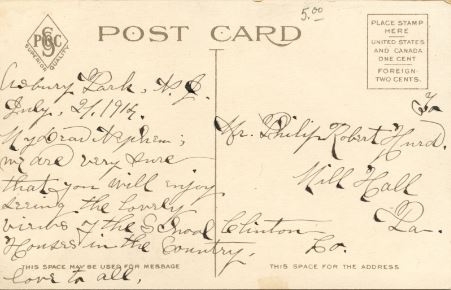 5.00
POST CARD
SUPERIOR QUALITY
PLACE STAMP
HERE
UNITED STATES
AND CANADA
ONE CENT
FOREIGN
TWO CENTS.
Asbury Park, N.J.
July, 21, 1914.
My Dear Nephew;
we are very sure
that you will enjoy
seeing the lovely
views of the School
Houses in the Country.
love to all,
Mr. Philip Robert Hurd.
Mill Hall
Clinton Pa.
Co.
THIS SPACE MAY BE USED FOR MESSAGE
THIS SPACE IS FOR THE ADDRESS